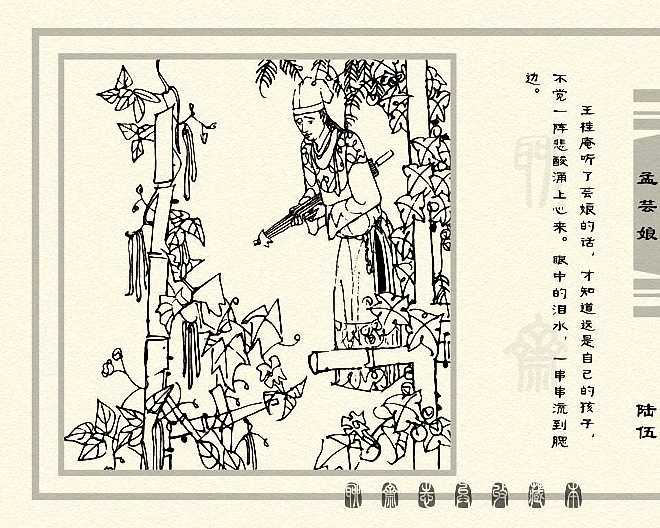 王桂庵听了芸娘的话，才知道这是自己的孩子，
不觉一阵悲酸涌上心来。眼中的泪水，一串串流到腮
边。
孟芸娘
陆伍